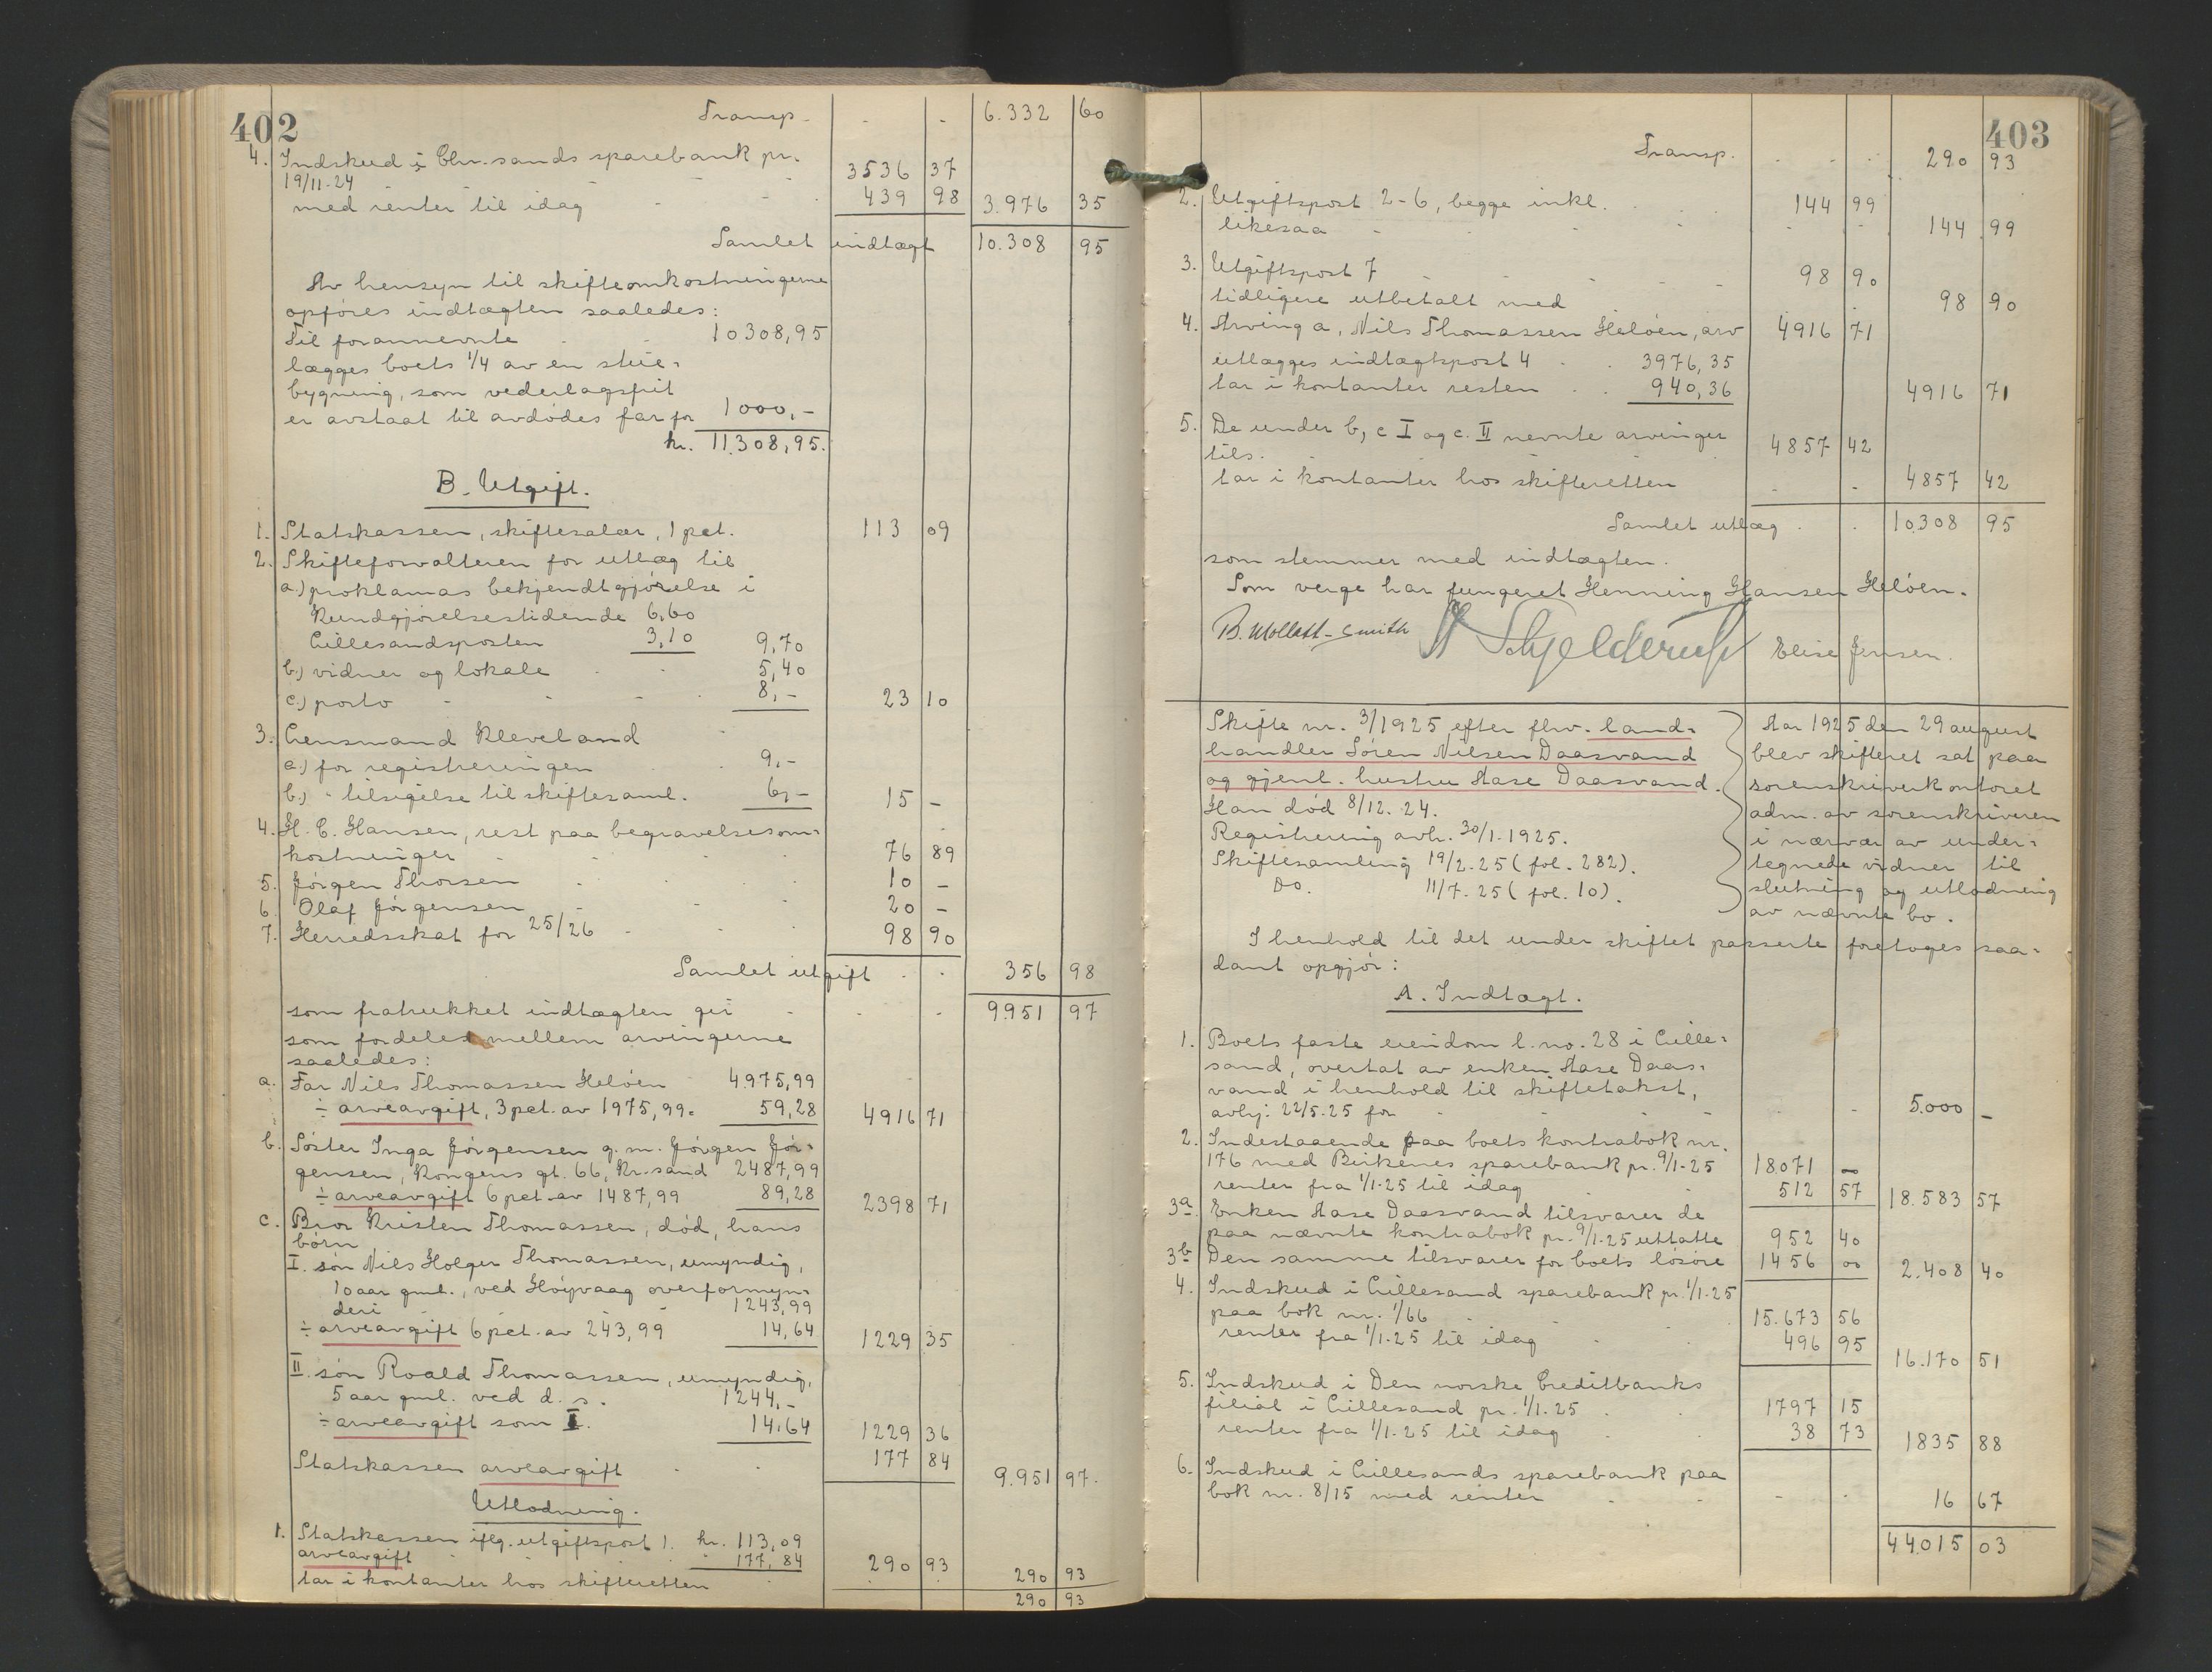 402
Transp. - - 6.332 60
4. Indskud i Chr.sands sparebank pr.
19/11-24 - - - 3536 37
med renter til idag - - 439 98 3.976 35
Samlet indtægt 10.308 95
Av hensyn til skifteomkostningerne
opføres indtægten saaledes:
Til forannevnte 10308,95
lægges boets 1/4 av en stue-
bygning, som vederlagsfrit
er avstaat til avdødes far for 1000,-
kr. 11.308,95.
B. Utgift.
1. Statskassen, skiftesalær, 1 pct. 113 09
2. Skifteforvalteren for utlæg til
a.) proklamas bekjendtgjørelse i
Kundgjørelsestidende 6.60
Lillesandsposten 3,10 9,70
b.) vidner og lokale - - 5,40
c.) porto - - - 8,- 23 10
3. Lensmand Kleveland
a.) for registreringen - 9,-
b.) " tilsigelse til skiftesaml. 6,- 15 -
4. H. C. Hansen, rest paa begravelsesom-
kostninger - - - - 76 89
5. Jørgen Thorsen - - - 10 -
6. Olaf Jørgensen - - - 20 -
7. Herredsskat for 25/26 - - - 98 90
Samlet utgift - - 356 98
som fratrukket indtægten gir - - - 9951 97
som fordeles mellem arvingerne
saaledes:
a. Far Nils Thomassen Heløen 4.975,99
÷ arveavgift, 3 pct. av 1975,99. 59,28 4916 71
b. Søster Inga Jørgensen g. m. Jørgen Jør-
gensen, Kongens gt. 66, Kr.sand 2487,99
÷ arveavgift 6 pct. av 1487,99 89,28 2398 71
c. Bror Kristen Thomassen, død, hans
børn
I. søn Nils Holger Thomassen, umyndig,
10 aar gml., ved Høivaag overformyn-
deri - - 1243,99
÷ arveavgift 6 pct. av 243,99 14,64 1229 35
II. søn Roald Thomassen, umyndig,
5 aar gml. ved d. s. 1244,-
÷ arveavgift som I. 14,64 1229 36
Statskassen arveavgift - - 177 84 9.951 97.
Utlodning.
1. Statskassen iflg. utgiftspost 1. kr. 113,09
arveavgift - - - " 177,84 290 93 290 93
tar i kontanter hos skifteretten
290 93
403
Transp. - - - 290 93
2. Utgiftspost 2-6, begge inkl. - - 144 99
likesaa - - - - - 144 99
3. Utgiftspost 7 - - - 98 90
tidligere utbetalt med - - 98 90
4. Arving a, Nils Thomassen Heløen, arv 4916 71
utlægges indtægtspost 4 - - 3976,35
tar i kontanter resten - - 940,36 4916 71
5. De under b, c I og c. II nevnte arvinger
tils. 4857 42
tar i kontanter hos skifteretten - - 4857 42
Samlet utlæg - - 10.308 95
som stemmer med indtægten.
Som verge har fungeret Henning Hansen Heløen.
B. Mollatt-Smith Schjelderup Elise Jensen.
Skifte nr. 3/1925 efter fhv. land-
handler Søren Nilsen Daasvand
og gjenl. hustru Aase Daasvand.
Han død 8/12.24.
Registrering avh. 30/1-1925.
Skiftesamling 19/2-25 (fol. 282).
Do. 11/7-25 (fol. 10).
Aar 1925 den 29 august
blev skifteret sat paa
sorenskriverkontoret
adm. av sorenskriveren
i nærvær av under-
tegnede vidner til
slutning og utlodning
av nævnte bo.
I henhold til det under skiftet passerte foretoges saa-
dant opgjør:
A. Indtægt.
1. Boets faste eiendom l.no. 28 i Lille-
sand, overtat av enken Aase Daas-
vand i henhold til skiftetakst,
avhj. 22/5-25 for - - - - - 5.000 -
2. Indestaaende paa boets kontrabok nr.
176 med Birkenes sparebank pr. 9/1-25 18071 -
renter fra 1/1-25 til idag - - 512 57 18.583 57
3a. Enken Aase Daasvand tilsvarer de
paa nævnte kontrabok pr. 9/1-25 uttatte 952 40
3b Den samme tilsvarer for boets løsøre 1456 00 2.408 40
4. Indskud i Lillesand sparebank pr. 1/1-25
paa bok nr. 1/66 - - - 15.673 56
renter fra 1/1-25 til idag - - 496 95 16.170 51
5. Indskud i Den norske Creditbanks
filial i Lillesand pr. 1/1-25 - - 1797 15
renter fra 1/1-25 til idag - - 38 73 1835 88
6. Indskud i Lillesands sparebank paa
bok nr. 8/15 med renter - - - - 16 67
44.015 03